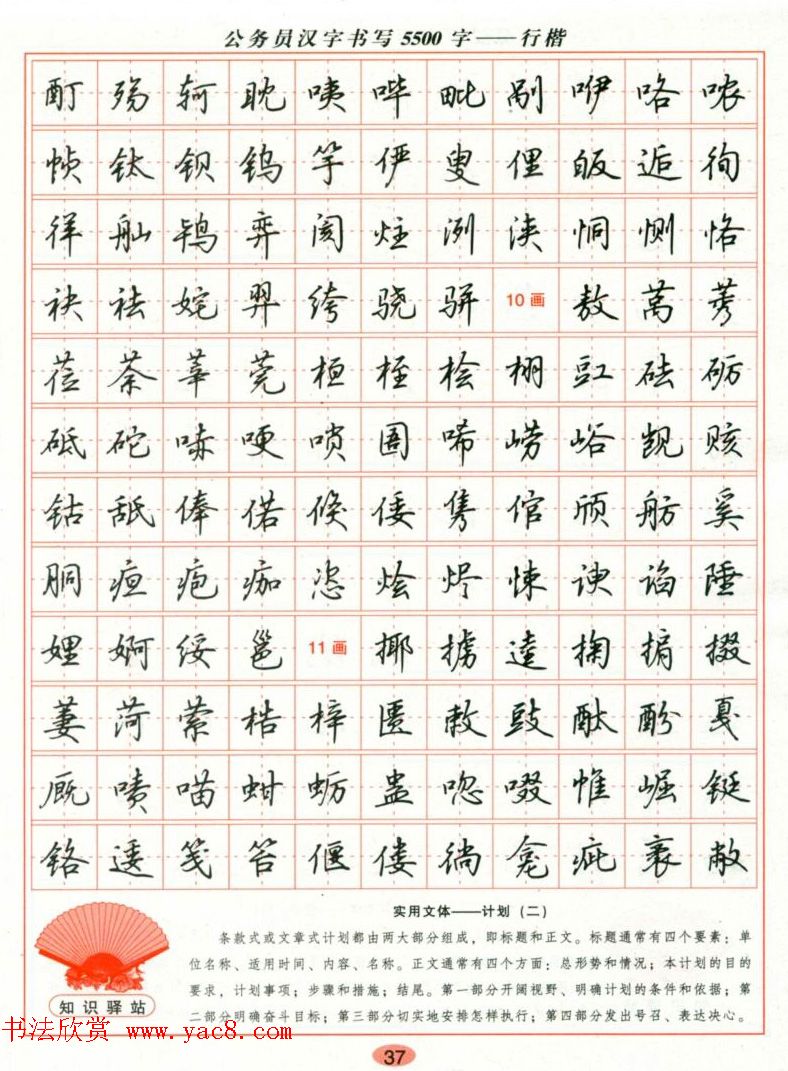 公务员汉字书写5500字——行楷
酊 殇 轲 眈 咦 哔 毗 剐 咿 咯 哝
帧 钛 钡 钨 竽 俨 叟 俚 皈 逅 徇
徉 舢 鸨 弈 阂 炷 洌 浃 恫 恻 恪
袂 祛 姹 羿 绔 骁 骈 10画 敖 莴 莠
莅 荼 莘 莞 桓 桎 桧 栩 豇 砝 砺
砥 砣 哧 哽 唢 圄 唏 崂 峪 觊 赅
钴 舐 俸 偌 倏 倭 隽 倌 颀 舫 奚
胴 疸 疱 痂 恣 烩 烬 悚 谀 谄 陲
娌 婀 绥 邕 11画 揶 掳 逵 掬 掮 掇
萋 菏 萦 梏 梓 匿 敕 豉 酞 酚 戛
厩 啧 喵 蚶 蛎 蛊 唿 啜 帷 崛 铤
铬 逶 笺 笤 偃 偻 徜 龛 疵 袤 敝
实用文体——计划（二）
条款式或文章式计划都由两大部分组成，即标题和正文。标题通常有四个要素：单
位名称、适用时间、内容、名称。正文通常有四个方面：总形势和情况；本计划的目的
要求，计划事项；步骤和措施；结尾。第一部分开阔视野、明确计划的条件和依据；第
二部分明确奋斗目标；第三部分切实地安排怎样执行；第四部分发出号召、表达决心。
知识驿站
书法欣赏 www.yac8.com
37